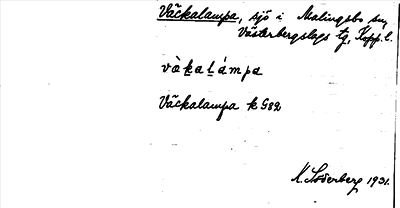 Väckalampa, sjö i Malingsbo sn,
Västerbergslags tg, Kopp. l.
vàkalámpa
Väckalampa k G82
K. Söderberg 1931.